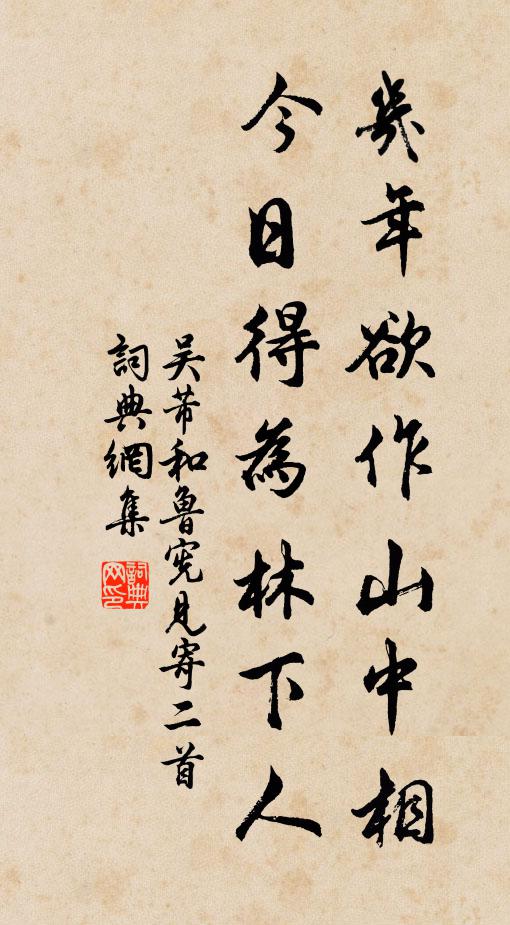 幾年欲作山中相
今日得為林下人
吴芾和魯完見寄二首
詞典網集
詞典
网印